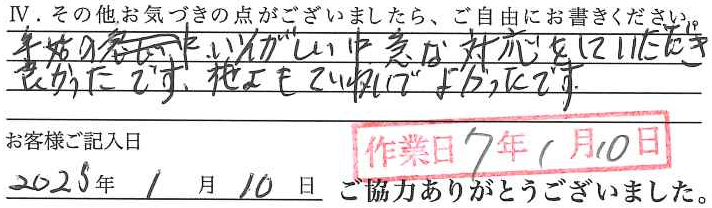 Ⅳ.その他お気づきの点がございましたら、ご自由にお書きください。
年始の いそがしい中 急な対応をしていただき
良かったです、 もていねいでよかったです.
お客様ご記入日
作業日 7年 1月10日
2025年 1月 10日 ご協力ありがとうございました。